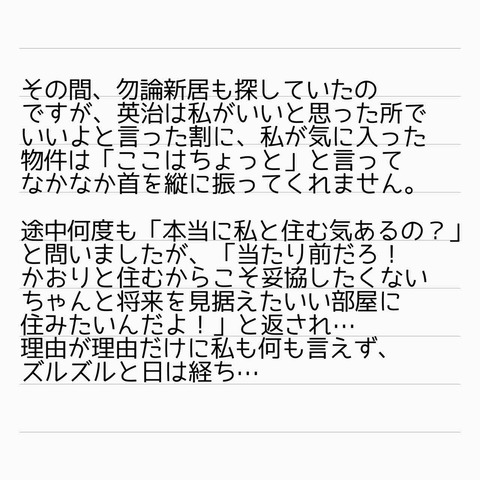 その間、勿論新居も探していたの
ですが、英治は私がいいと思った所で
いいよと言った割に、私が気に入った
物件は「ここはちょっと」と言って
なかなか首を縦に振ってくれません。
途中何度も「本当に私と住む気あるの？」
と問いましたが、「当たり前だろ！
かおりと住むからこそ妥協したくない
ちゃんと将来を見据えたいい部屋に
住みたいんだよ！」と返され…
理由が理由だけに私も何も言えず、
ズルズルと日は経ち…